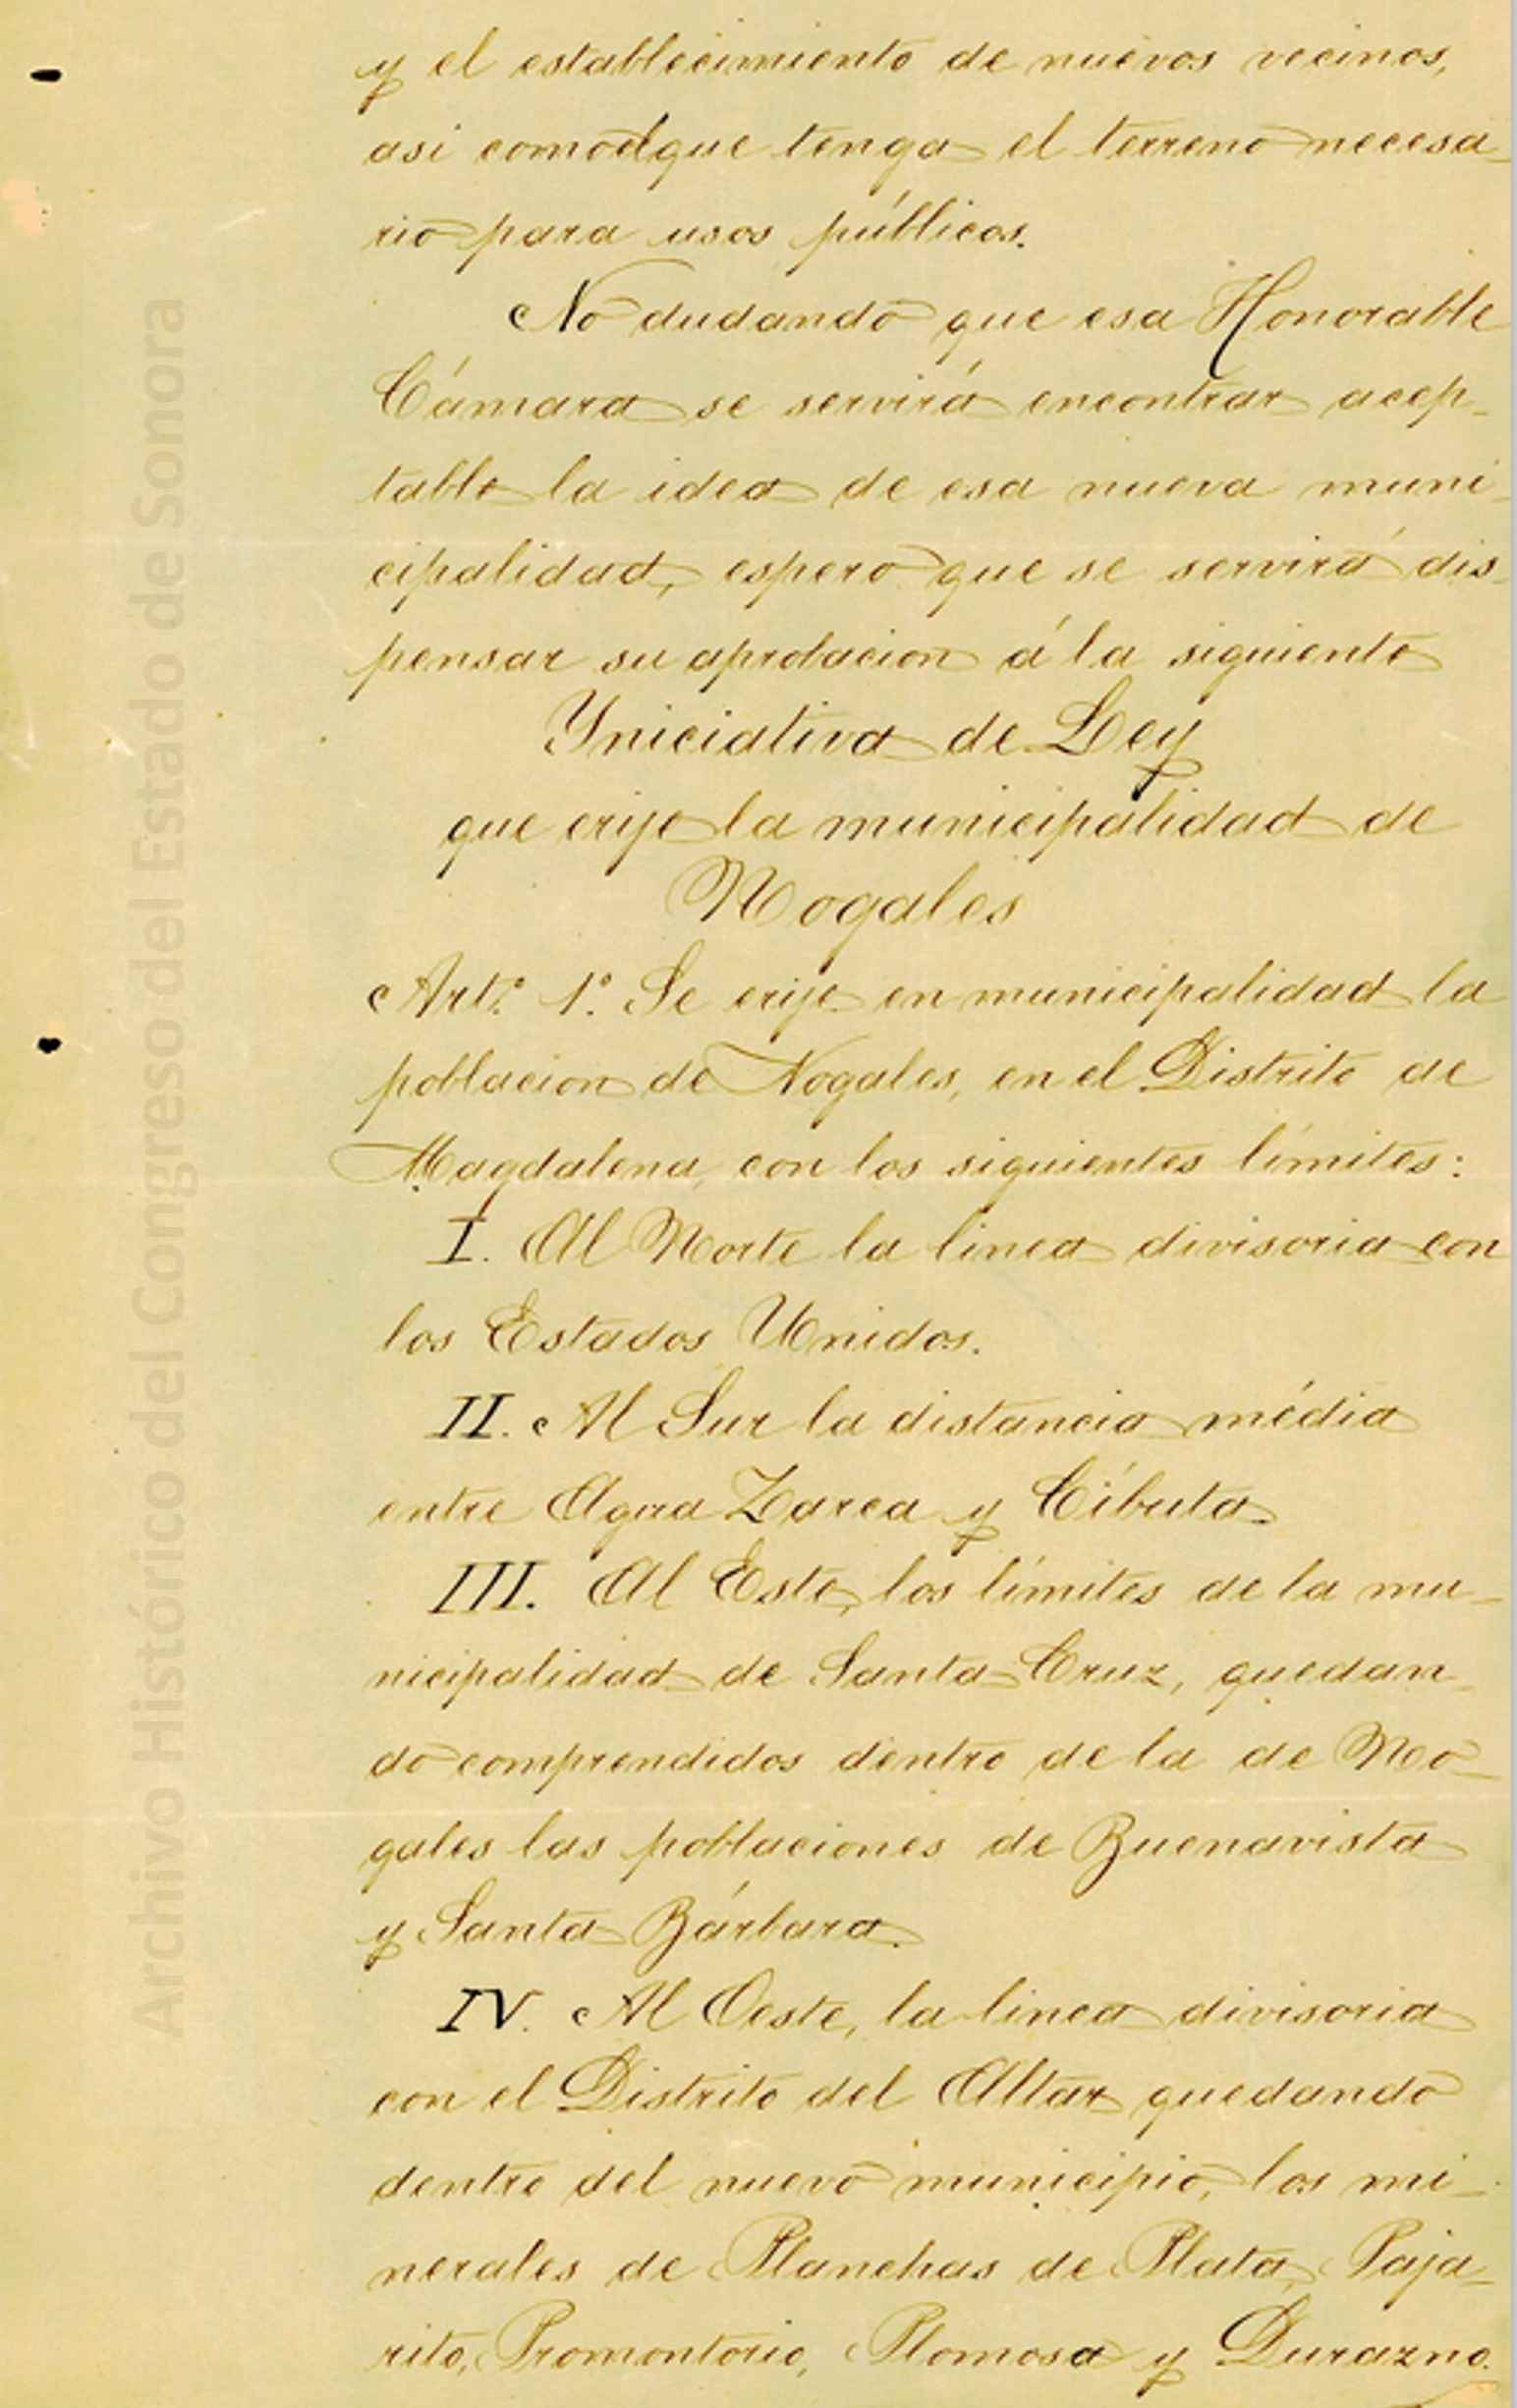 y el establecimiento de nuevos vecinos,
asi como el que tenga el terreno necesa-
rio para usos públicos.
No dudando que esa Honorable
Cámara se servirá encontrar acep-
table la idea de esa nueva muni-
cipalidad, espero que se servirá dis-
pensar su aprobacion á la siguiente
Yniciativa de Ley
que erije la municipalidad de
Nogales
Art.º 1.º Se erije en municipalidad la
poblacion de Nogales, en el Distrito de
Magdalena, con los siguientes límites:
I. Al Norte la linea divisoria con
los Estados Unidos.
II. Al Sur la distancia média
entre Agua Zarca y Cíbuta
III. Al Este, los límites de la mu-
nicipalidad de Santa Cruz, quedan-
do comprendidos dentro de la de No-
gales las poblaciones de Buenavista
y Santa Bárbara.
IV. Al Oeste, la linea divisoria
con el Distrito del Altar quedando
dentro del nuevo municipio, los mi-
nerales de Planchas de Plata, Paja-
rito, Promontorio, Plomosa y Durazno.
Archivo Histórico del Congreso del Estado de Sonora